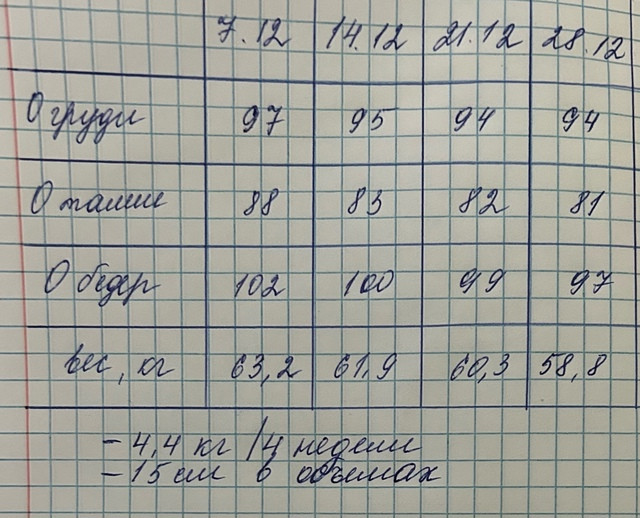 7.12 14.12 21.12 28.12
О груди 97 95 94 94
О талии 88 83 82 81
О бедер 102 100 99 97
вес, кг 63,2 61,9 60,3 58,8
- 4,4 кг /4 недели
- 15 см в объемах